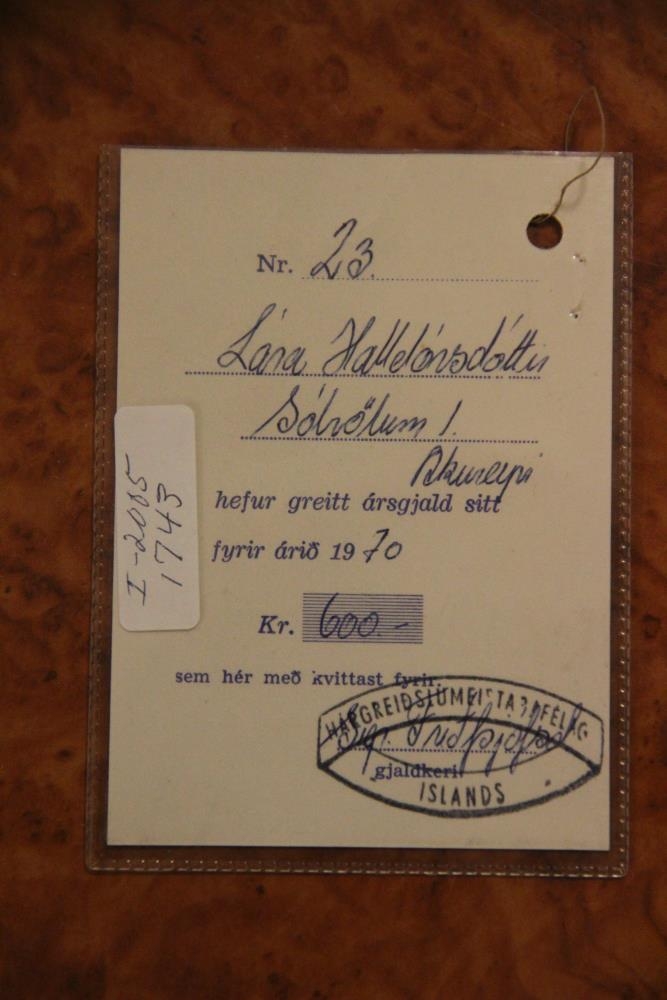 Nr. 23.
Lára Halldórsdóttir
Sólvöllum 1.
Akureyri
hefur greitt ársgjald sitt
fyrir árið 1970
Kr. 600.-
sem hér með kvittast fyrir.
HÁRGREIÐSLUMEISTARAFÉLAG
gjaldkeri
ÍSLANDS
I-2005
1743